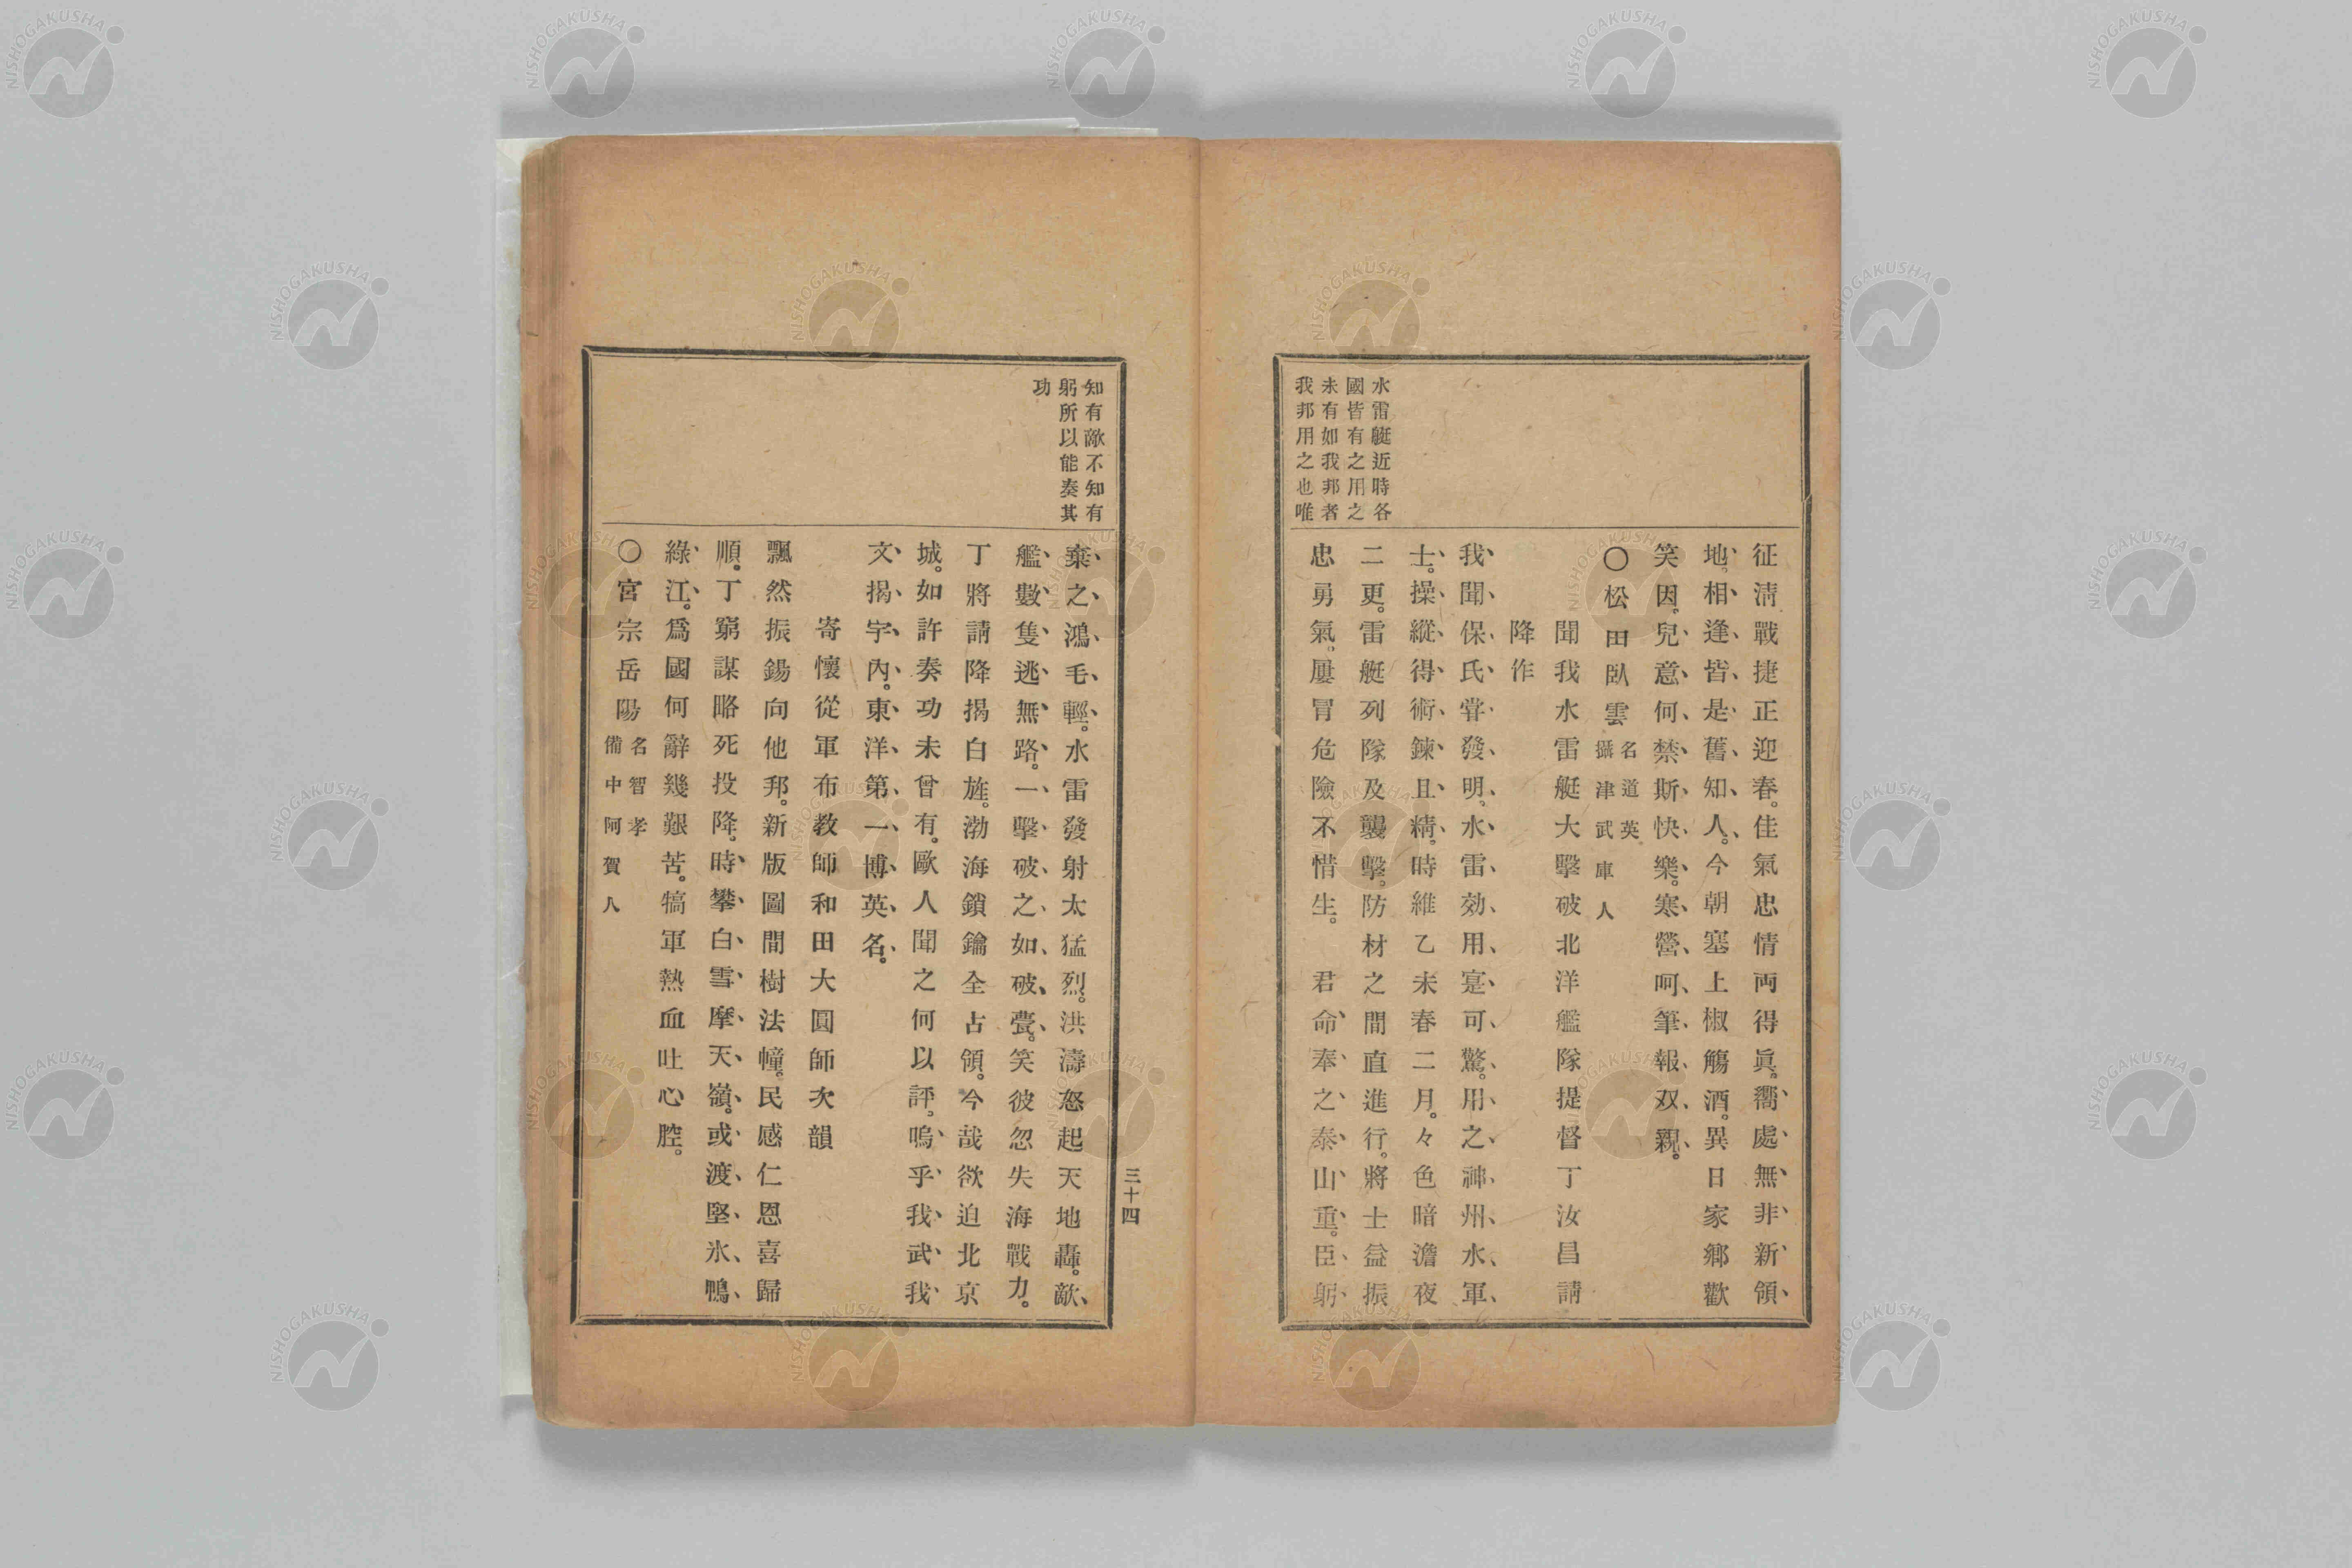 水雷艇近時各
國皆有之用之
未有如我邦者
我邦用之也唯
征淸戰捷正迎春。佳氣忠情両得眞。嚮處無非新領
地。相逢皆是舊知人。今朝塞上椒觴酒。異日家鄕歡
笑因。兒意何禁斯快樂。寒營呵筆報双親。
〇松田臥雲 名道英 攝津武庫人
聞我水雷艇大擊破北洋艦隊提督丁汝昌請
降作
我聞保氏甞發明。水雷効用寔可驚。用之神州水軍
士。操縱得術鍊且精。時維乙未春二月。々色暗澹夜
二更。雷艇列隊及襲擊。防材之間直進行。將士益振
忠勇氣。屢冒危險不惜生。君命奉之泰山重。臣躬
知有敵不知有
躬所以能奏其
功
棄之鴻毛輕。水雷發射太猛烈。洪濤怒起天地轟。敵
艦數隻逃無路。一擊破之如破甍。笑彼忽失海戰力。
丁將請降揭白旌。渤海鎖鑰全占領。今哉欲迫北京
城。如許奏功未曾有。歐人聞之何以評。嗚乎我武我
文揭宇內。東洋第一博英名。
寄懷從軍布敎師和田大圓師次韻
飄然振錫向他邦。新版圖間樹法幢。民感仁恩喜歸
順。丁窮謀略死投降。時攀白雪摩天嶺。或渡堅氷鴨
綠江。爲國何辭幾艱苦。犒軍熱血吐心腔。
〇宮宗岳陽 名智孝 備中阿賀人
三十四
NISHOGAKUSHA